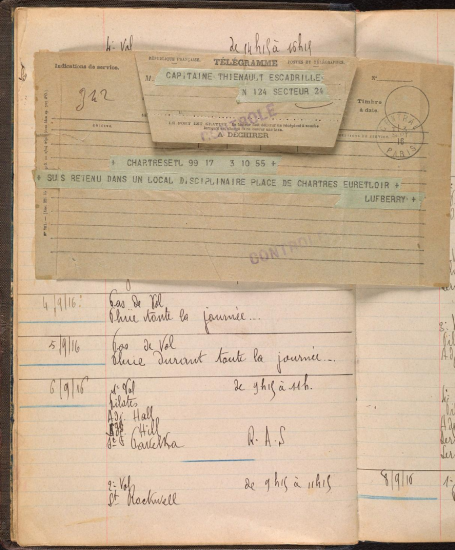 4e Vol de 14h15 à 15h15
RÉPUBLIQUE FRANÇAISE. POSTES ET TÉLÉGRAPHES
Indications de service. TÉLÉGRAMME N°
CAPITAINE THIENAULT ESCADRILLE
N 124 SECTEUR 24
942
Timbre
à date
PARIS
CONTROLE
À DÉCHIRER
+ CHARTRESETL 99 17 3 10 55 +
+ SUIS RETENU DANS UN LOCAL DISCIPLINAIRE PLACE DE CHARTRES EURETLOIR +
LUFBERRY +
CONTROLE
4/9/16. Pas de Vol
Pluie toute la journée....
5/9/16 Pas de Vol
Pluie durant toute la journée...
6/9/16 1er Vol de 9h15 à 11h.
Pilotes
Adj. Hall
Hill
Pavelka R.A.S
2e Vol de 9h15 à 11h15
St Rockwell
8/9/16